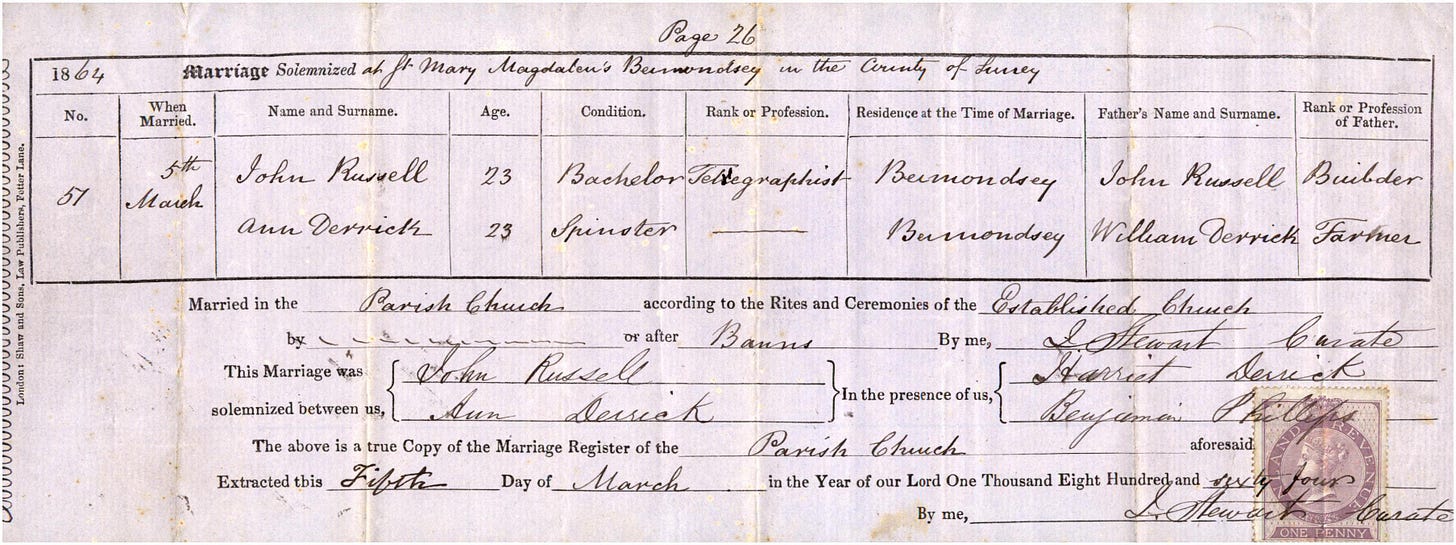 Page 26
1864 Marriage Solemnized at St Mary Magdalen's Bermondsey in the County of Surrey
No. When Married. Name and Surname. Age. Condition. Rank or Profession. Residence at the Time of Marriage. Father's Name and Surname. Rank or Profession of Father.
51 5th March John Russell 23 Bachelor Telegraphist Bermondsey John Russell Builder
Ann Derrick 23 Spinster Bermondsey William Derrick Farmer
Married in the Parish Church according to the Rites and Ceremonies of the Established Church
by or after Banns By me, J. Stewart Curate
This Marriage was solemnized between us, John Russell In the presence of us, Harriet Derrick
Ann Derrick Benjamin Phillips
The above is a true Copy of the Marriage Register of the Parish Church aforesaid
Extracted this Fifth Day of March in the Year of our Lord One Thousand Eight Hundred and sixty four
By me, J. Stewart Curate
London: Shaw and Sons, Law Publishers, Fetter Lane.
INLAND REVENUE
ONE PENNY